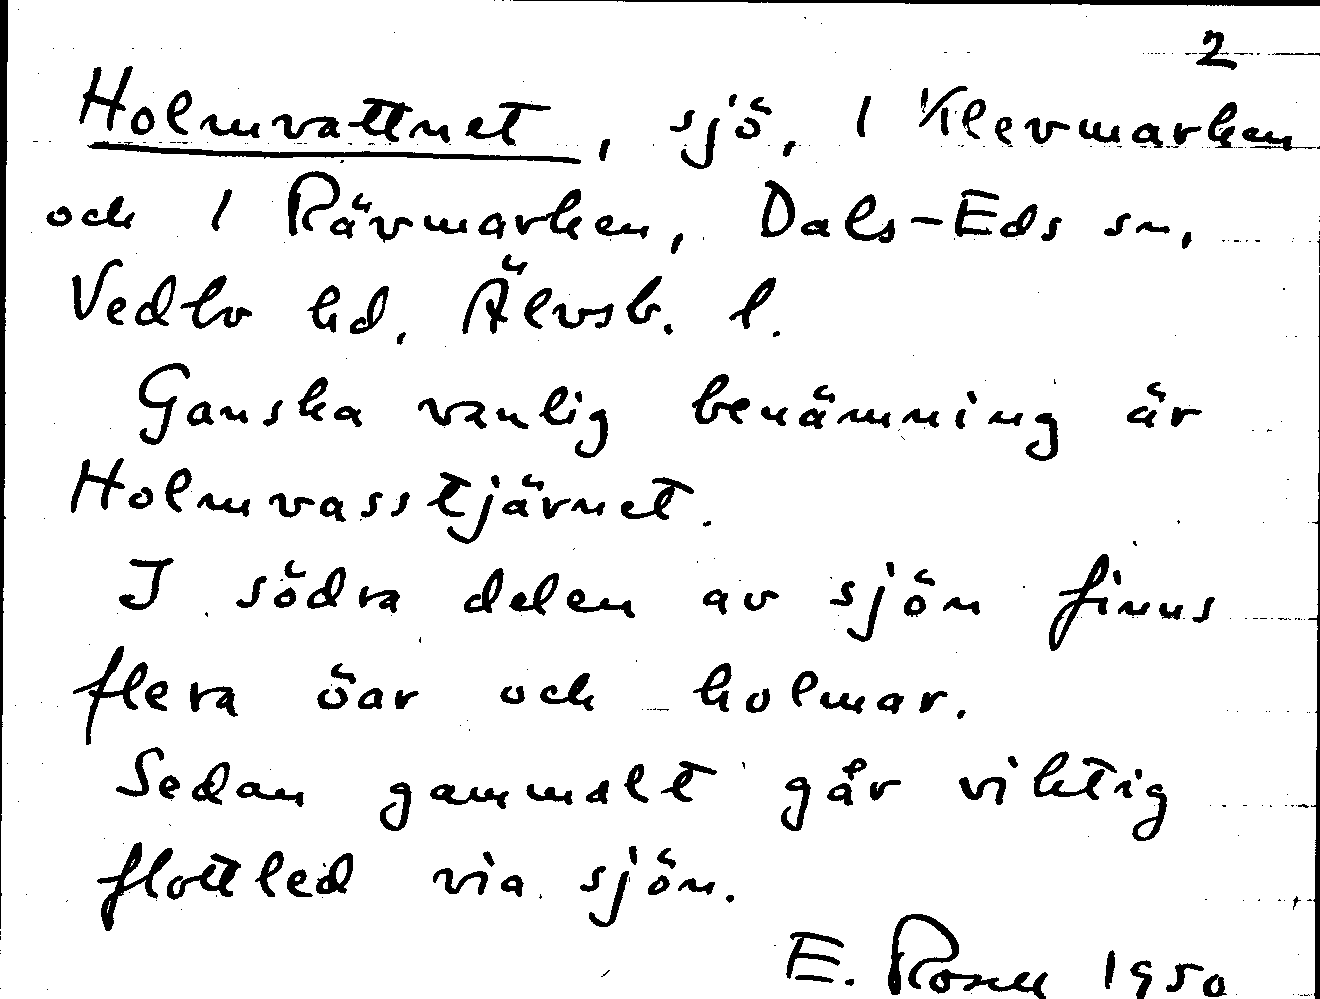 2
Holmvattnet, sjö, 1 Klevmarken
och 1 Rävmarken, Dals-Eds sn,
Vedbo hd, Älvsb. l.
Ganska vanlig benämning är
Holmvasstjärnet.
I södra delen av sjön finns
flera öar och holmar.
Sedan gammalt går viktig
flottled via sjön.
E. Rosell 1950